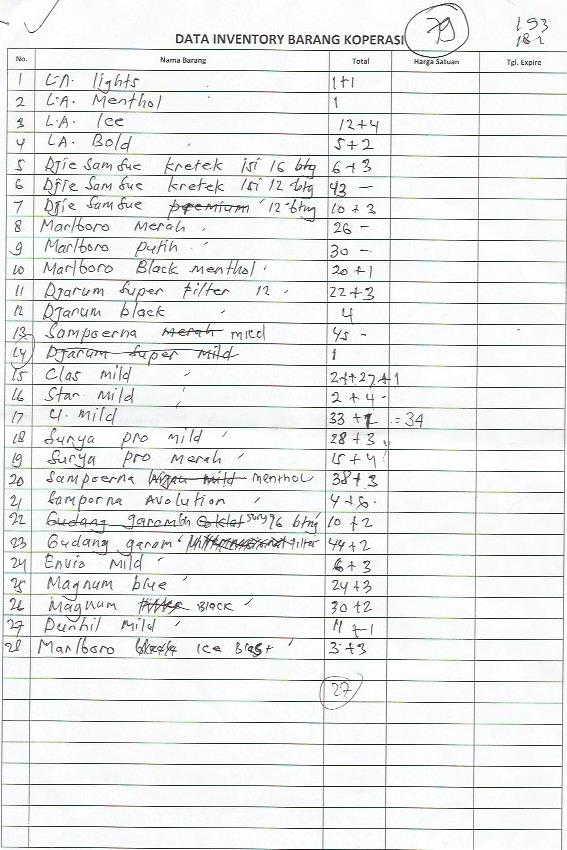 79
193
182
DATA INVENTORY BARANG KOPERASI
No. Nama Barang Total Harga Satuan Tgl. Expire
1 L.A. lights 1+1
2 L.A. Menthol 1
3 L.A. Ice 12+4
4 LA. Bold 5+2
5 Djie Sam Sue kretek isi 16 btg 6+3
6 Djie Sam Sue kretek isi 12 btg 43 -
7 Djie Sam Sue premium 12 btng 10+3
8 Marlboro Merah 26 -
9 Marlboro putih 30 -
10 Marlboro Black menthol 20+1
11 Djarum Super Filter 12 22+3
12 Djarum black 4
13 Sampoerna Merah mild 45 -
14 Djarum Super Mild 1
15 Clas mild 27+1
16 Star Mild 2+4
17 U. Mild 33+1 = 34
18 Surya pro mild 28+3
19 Surya pro Merah 15+4
20 Sampoerna menthol 38+3
21 Samporna Avolution 4+6
22 Gudang garam Coklat 16 btng 10+2
23 Gudang garam filter 44+2
24 Envio Mild 6+3
25 Magnum blue 24+3
26 Magnum Black 30+2
27 Dunhil Mild 11+1
28 Marlboro Ice Blast 3+3
27